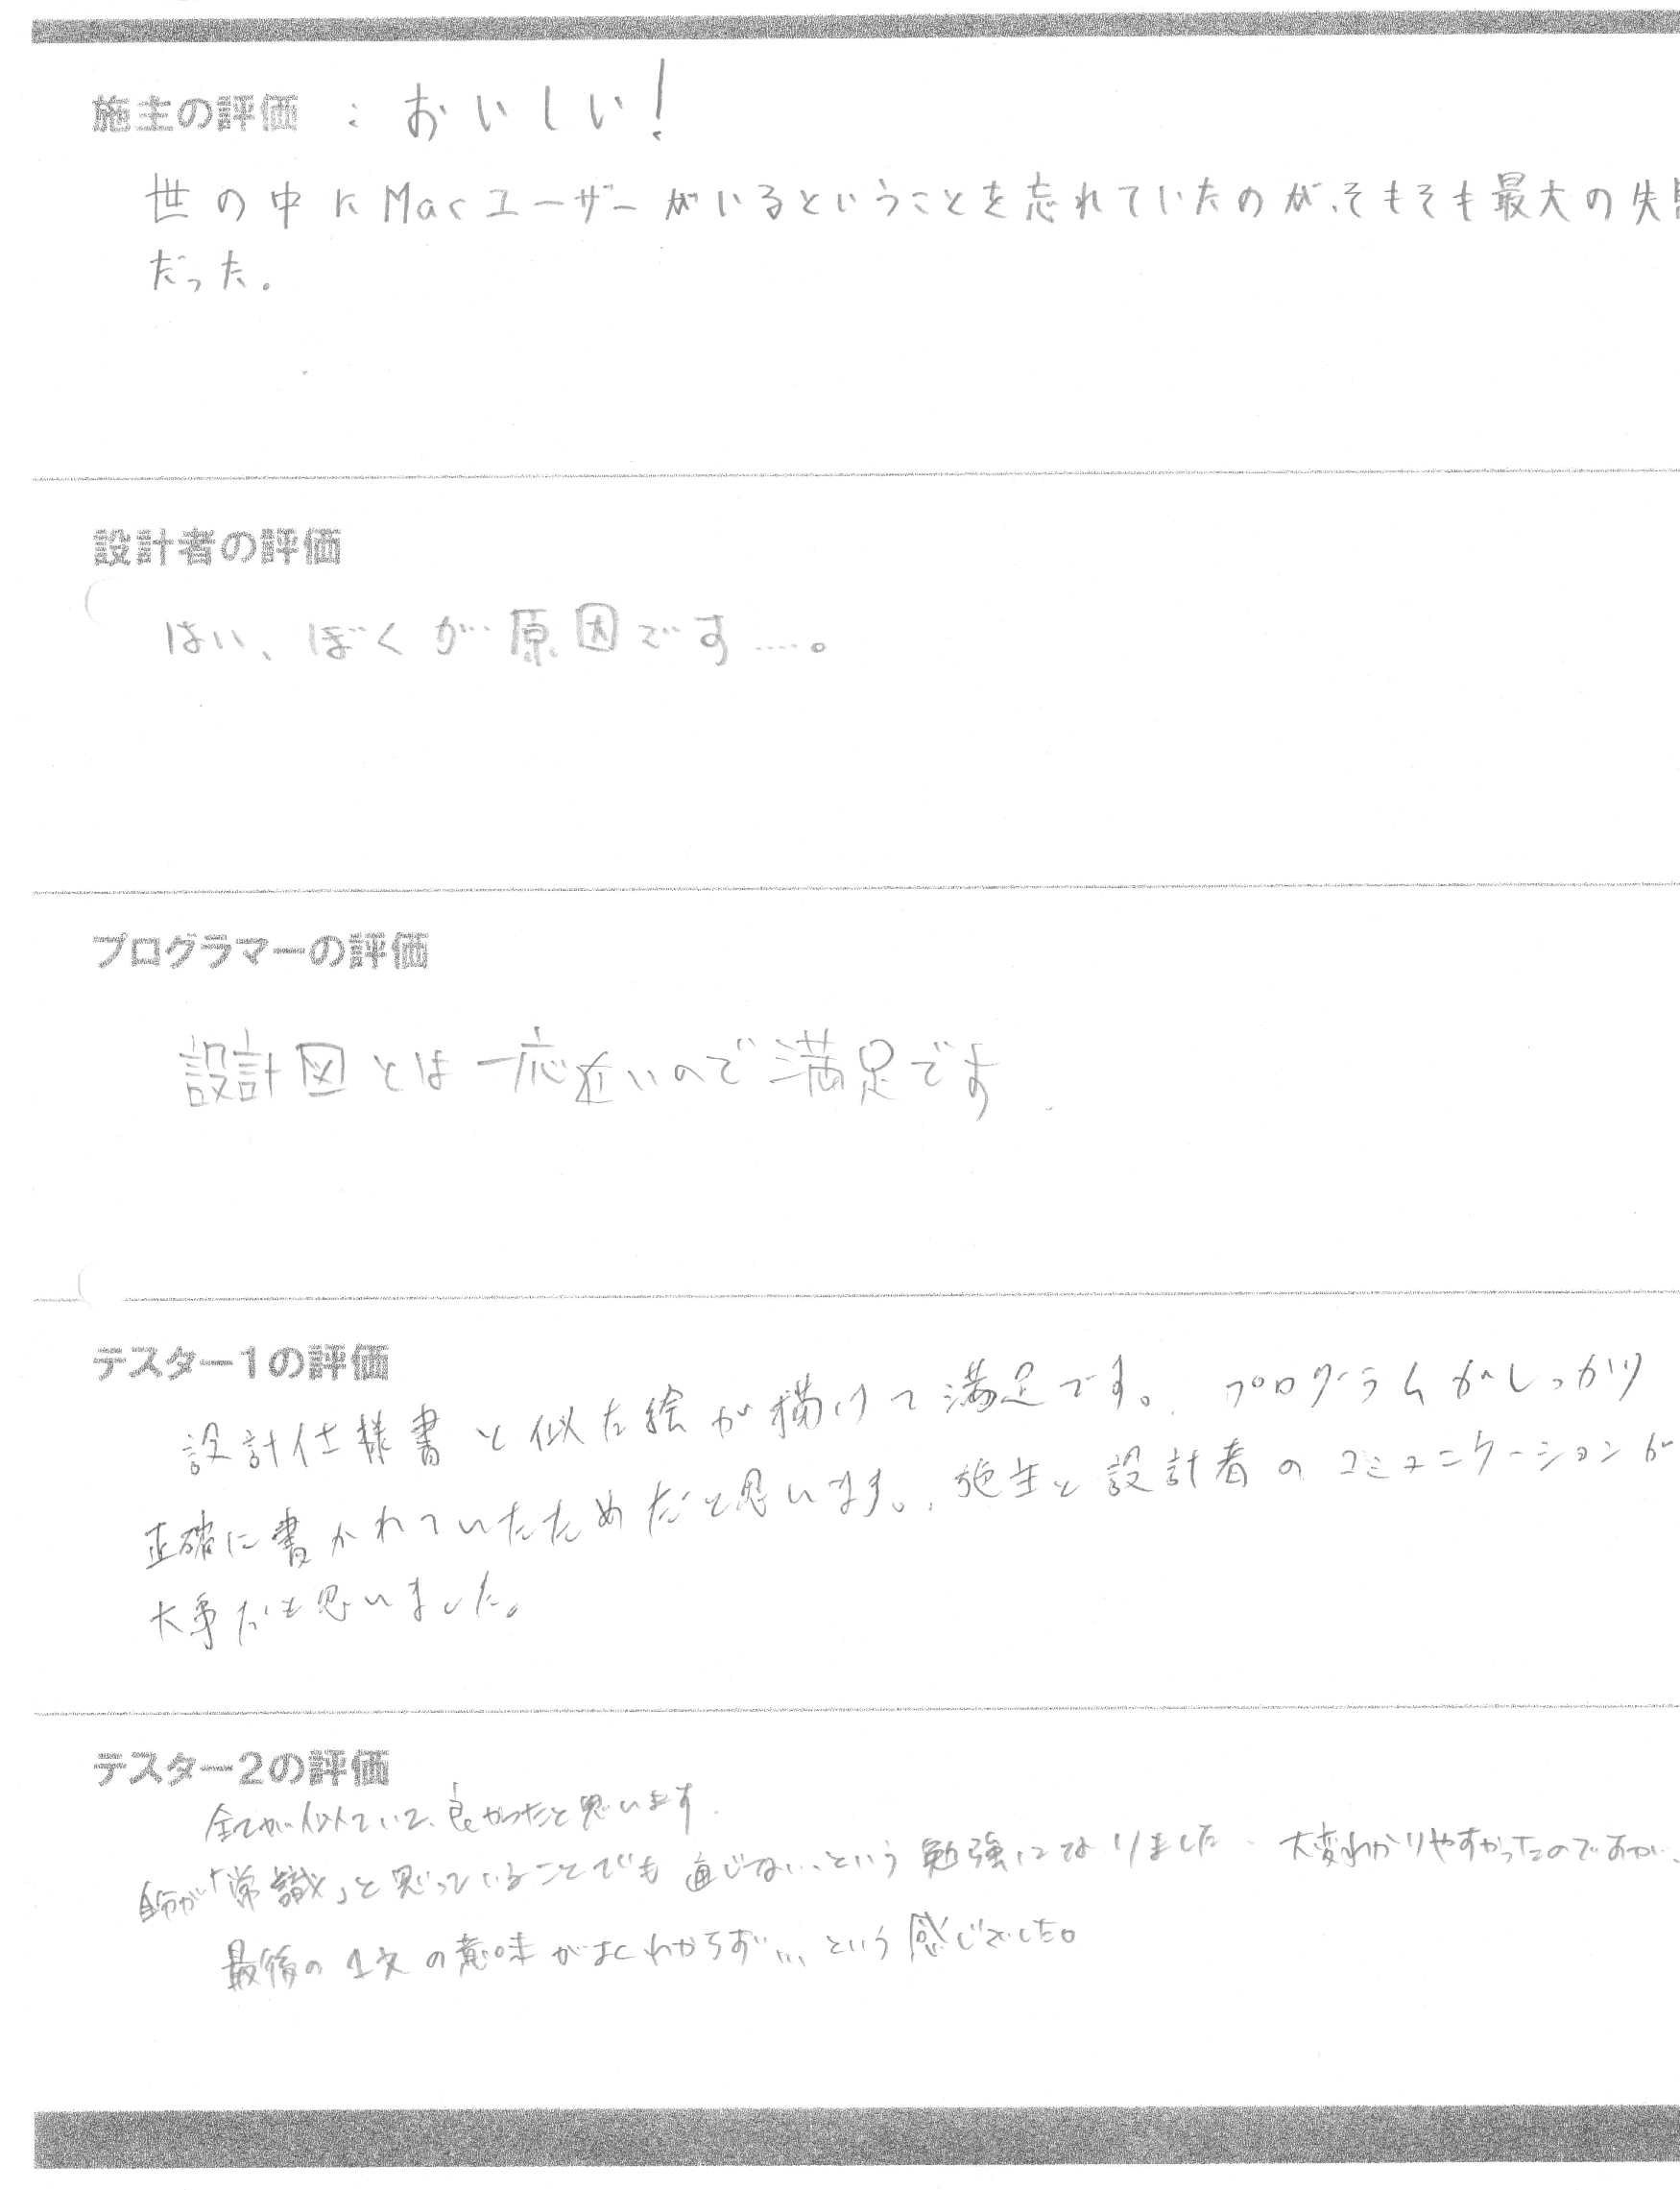 施主の評価 : おいしい!
世の中にMacユーザーがいるということを忘れていたのが、そもそも最大の失
だった。
設計者の評価
はい、ぼくが原因です……。
プログラマーの評価
設計図とは一応近いので満足です
テスター1の評価
設計仕様書と似た絵が描けて満足です。プログラムがしっかり
正確に書かれていたためだと思います。施主と設計者のコミュニケーションが
大事だと思いました。
テスター2の評価
全てが似ていて、良かったと思います
自分が「常識」と思っていることでも通じない、という勉強になりました 大変わかりやすかったのですが、
最後の1文の意味がよくわからず…という感じでした。